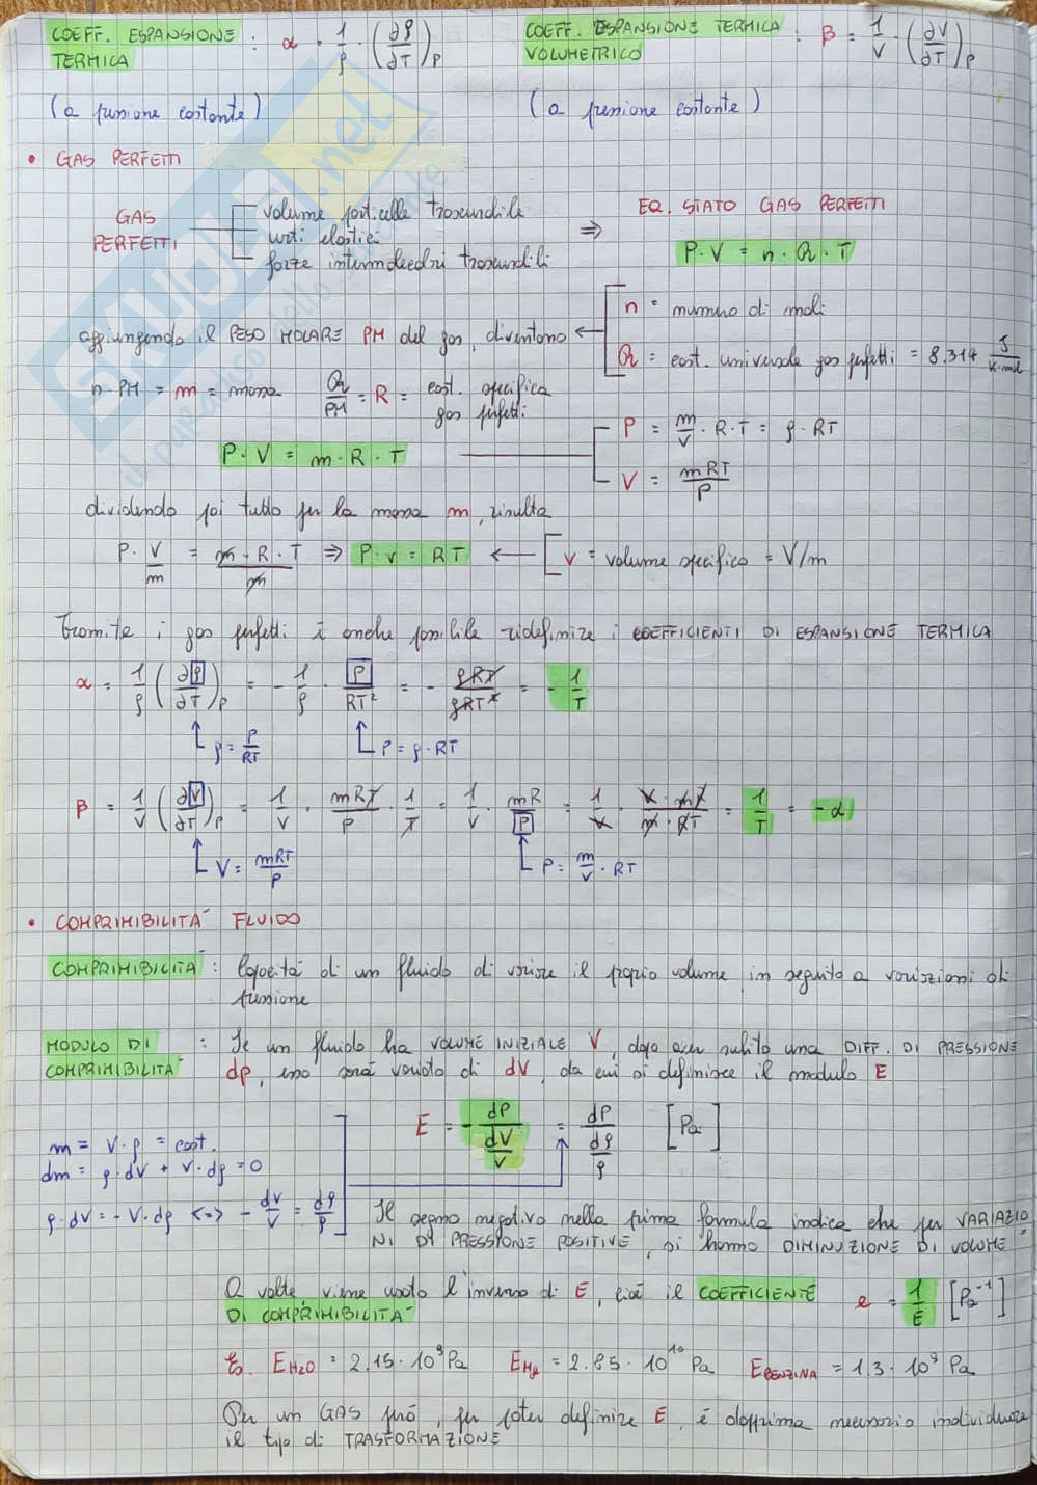 COEFF. ESPANSIONE TERMICA : α = 1/ρ · (∂ρ/∂T)P
COEFF. ESPANSIONE TERMICA VOLUMETRICO : β = 1/V · (∂V/∂T)P
(a pressione costante)
(a pressione costante)
• GAS PERFETTI
GAS PERFETTI
volume particelle trascurabile
urti elastici
forze intermolecolari trascurabili
⇒
EQ. STATO GAS PERFETTI
P · V = n · R · T
n = numero di moli
R = cost. universale gas perfetti = 8.314 J/K·mol
aggiungendo il PESO MOLARE PM del gas, diventano ←
n · PM = m = massa
R/PM = R = cost. specifica gas perfetti
P · V = m · R · T
P = m/V · R · T = ρ · RT
V = mRT/P
dividendo poi tutto per la massa m, risulta
P · V/m = m · R · T/m ⇒ P · v = RT ← [v = volume specifico = V/m
Tramite i gas perfetti è anche possibile ridefinire i COEFFICIENTI DI ESPANSIONE TERMICA
α = 1/ρ (∂ρ/∂T)P = - 1/ρ · P/RT² = - ρRT/ρRT² = - 1/T
ρ = P/RT
P = ρ · RT
β = 1/V (∂V/∂T)P = 1/V · mRT/P · 1/T = 1/V · mR/P = 1/V · V · mR/m · RT = 1/T = -α
V = mRT/P
P = m/V · RT
• COMPRIMIBILITÀ FLUIDO
COMPRIMIBILITÀ : Capacità di un fluido di variare il proprio volume in seguito a variazioni di
pressione
MODULO DI COMPRIMIBILITÀ : Se un fluido ha VOLUME INIZIALE V, dopo aver subito una DIFF. DI PRESSIONE
dp, esso sarà variato di dV, da cui si definisce il modulo E
E = - dP/(dV/V) = dP/(dρ/ρ) [Pa]
m = V · ρ = cost.
dm = ρ · dV + V · dρ = 0
ρ · dV = - V · dρ <=> - dV/V = dρ/ρ
Il segno negativo nella prima formula indica che per VARIAZIO
NI DI PRESSIONE POSITIVE, si hanno DIMINUZIONE DI VOLUME
A volte viene usato l'inverso di E, cioè il COEFFICIENTE
DI COMPRIMIBILITÀ
e = 1/E [Pa⁻¹]
Es. EH2O = 2.15 · 10⁹ Pa EHg = 2.85 · 10¹⁰ Pa EBENZINA = 1.3 · 10⁹ Pa
Per un GAS però, per poter definire E, è dapprima necessario individuare
il tipo di TRASFORMAZIONE